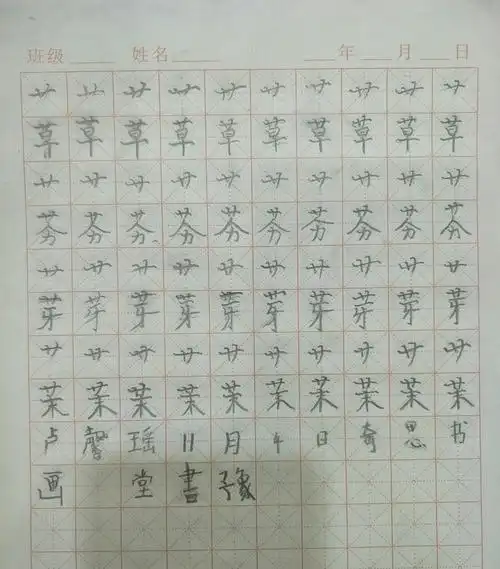 班级 姓名 年 月 日
艹 艹 艹 艹 艹 艹 艹 艹 艹 艹
草 草 草 草 草 草 草 草 草 草
艹 艹 艹 艹 艹 艹 艹 艹 艹 艹
芬 芬 芬 芬 芬 芬 芬 芬 芬 芬
艹 艹 艹 艹 艹 艹 艹 艹 艹 艹
芽 芽 芽 芽 芽 芽 芽 芽 芽 芽
艹 艹 艹 艹 艹 艹 艹 艹 艹 艹
茉 茉 茉 茉 茉 茉 茉 茉 茉 茉
卢 馨 瑶 11 月 4 日 奇 思 书
画 堂 書 豫